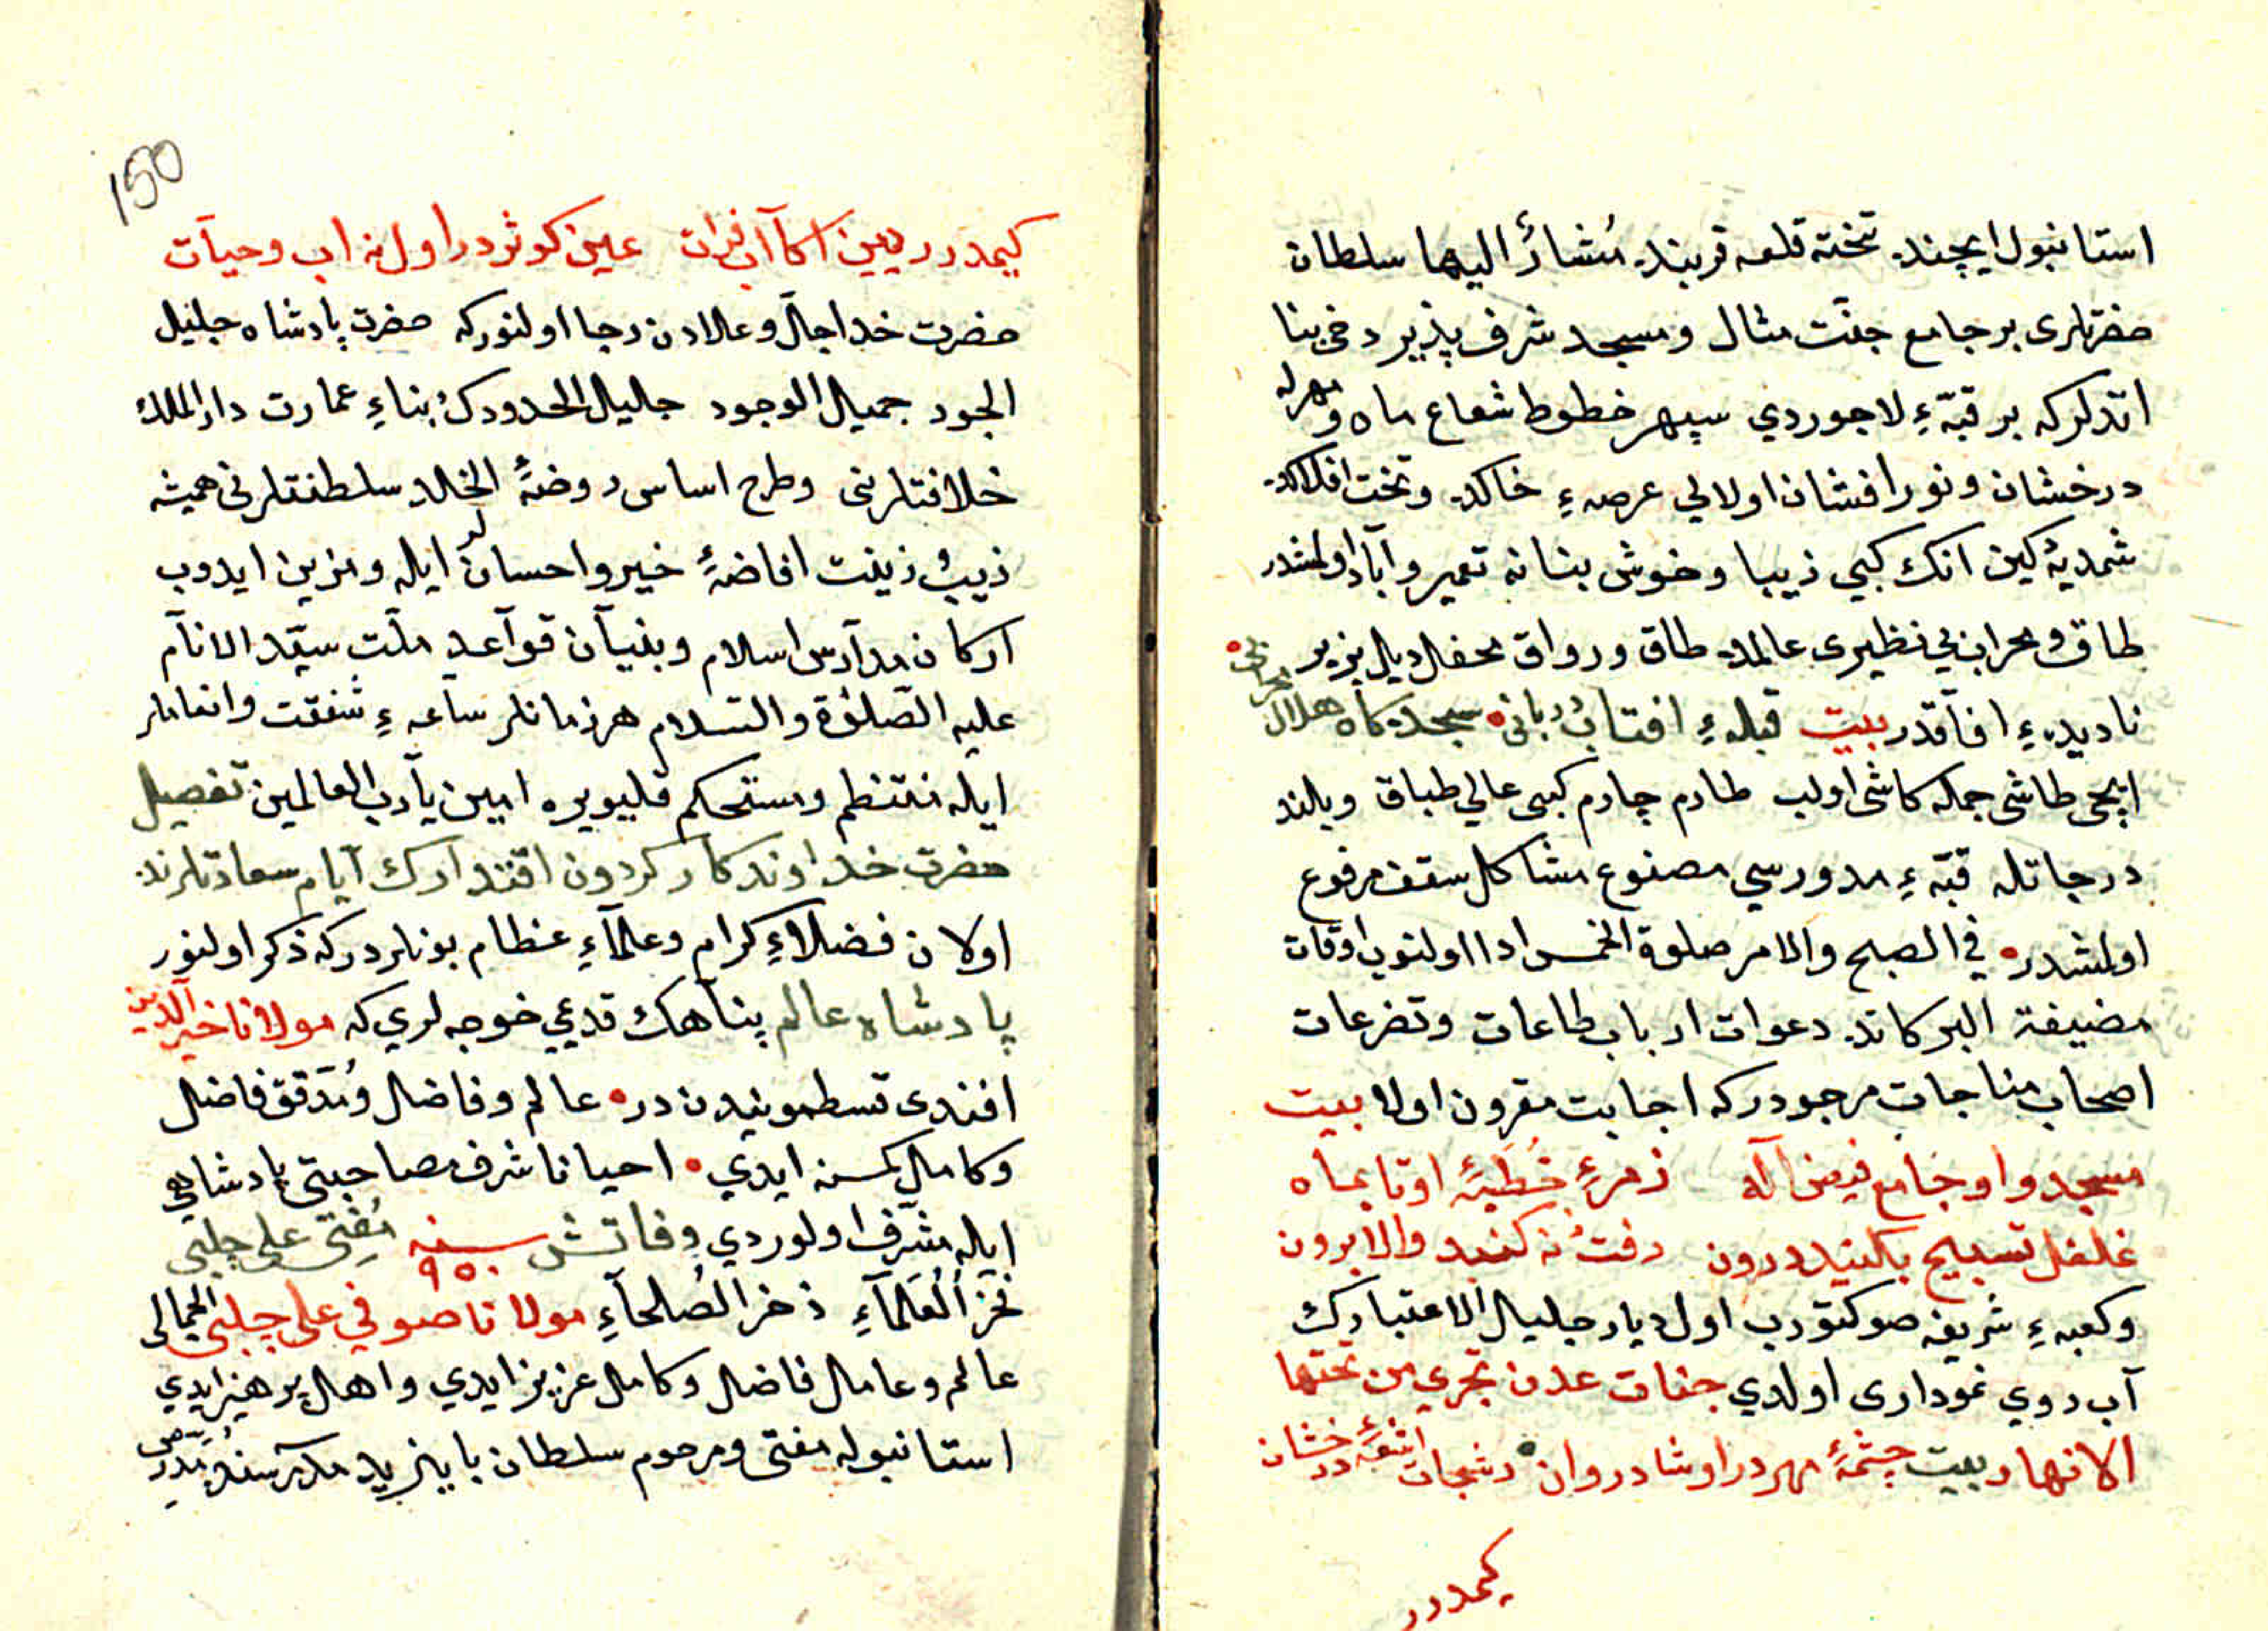 استانبول ایچنده تخته قلعه قربنده مُشارٌ الیها سلطان
حضرتلری بر جامع جنّت مثال و مسجد شرف پذیر دخی بنا
اتدلرکه بر قبّهٔ لاجوردي سپهر خطوط شعاع ماه و مهرله
درخشان و نورافشان اولالي عرصهٔ خاکده و تخت افلاکده
شمدیه کین انک کبي زیبا و خوش بنا نه تعمیر و آباد اولمشدر
طاق و محراب بي نظیری عالمده طاق و رواق محفل دیل پزیر
نادیدهٔ افاقدر بیت قبلهٔ افتاب ربانی سجده کاه هلال محرابی
ایچی طاشی جمله کاشی اولب طارم چارم کبی عالي طباق و بلند
درجاتله قبّهٔ مدورسي مصنوع مشاکل سقف مرفوع
اولمشدر في الصبح والامر صلوة الخمس ادا اولنوب اوقات
مضیفة البرکاتده دعوات ارباب طاعات و تضرعات
اصحاب مناجات مرجودرکه اجابت مقرون اولا بیت
مسجد و او جامع فیض اله زمرهٔ خُطبهٔ اوتا بماه
غلغل تسبیح بکنبد درون رفتُ نه کنبد والا برون
و کعبهٔ شریفه صو کتورب اول دیار جلیل الاعتبارك
آب روي نموداری اولدي جنات عدن تجري من تحتها
الانهار بیت چشمهٔ مهردر او شادروان رشحات اشعهٔ درخشان
کیمدرر
150
کیمدرر دیین اکا آب فرات عین کوثر در اول نه اب و حیات
حضرت خدا جلّ و علادن رجا اولنورکه حضرت پادشاه جلیل
الجود جمیل الوجود جلیل الحدودك بناءِ عمارت دار الملك
خلافتلرنی و طرح اساس روضهٔ الخلد سلطنتلرنی همیشه
زیب و زینت افاضهٔ خیر و احسانلر ایله و مزین ایدوب
ارکان مدآرس اسلام و بنیآن قوآعد ملّت سیّد الانآم
علیه الصّلوٰة والسّلام هر زمانلر ساعهٔ شفقت و انعاملر
ایله منتظم و مستحکم قلیویره امین یا رب العالمین تفصیل
حضرت خداوندکار کردون اقتدارك آیام سعادتلرنده
اولان فضلاءِ کرام و علمآءِ عظام بونلردرکه ذکر اولنور
پادشاه عالم پناهك قدیمي خوجه لري که مولانا خیر الّدین
افندی قسطمونیدن در عالم و فاضل و مُدَقق فاضل
و کامل کمسنه ایدي احیانا شرف مصاحبتی پادشاهي
ایله مشرّف اولوردي وفاتش سنه ۹۵۰ مُفتی علي چلبي
فخر العُلمآءِ ذخر الصُلحآءِ مولانا صوفي علي چلبي الجمالی
عالم و عامل فاضل و کامل عزیز ایدي و اهل پرهیز ایدي
استانبوله مفتی و مرحوم سلطان بایزید مدرسه سنه مُدَرّس